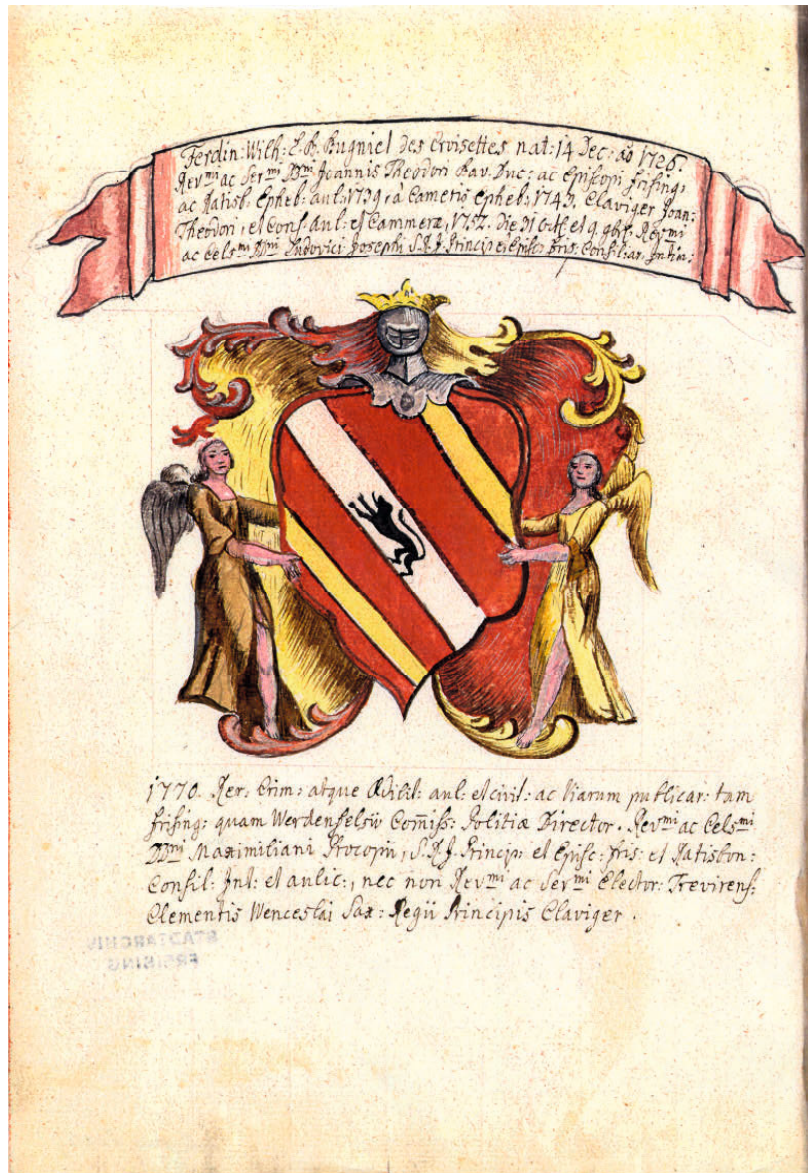 Ferdin: Wilh: L. B. Bugniel des Croisettes nat: 14 Dec: aō 1726.
Rev^mi ac Ser^mi D^ni Joannis Theodori Bav. Duc: ac Episcopi Frising:
ac Ratisb. Epheb: aul: 1739, à Cameris Epheb: 1743, Claviger Joan:
Theodori, et Cons. Aul: et Cammeræ, 1752. Die 31 et 9 Rev^mi
ac Cels^mi D^ni Ludovici Josephi S. R. J. Princip: et Episc: Fris: Consiliar. Intim:
1770. Rer: Crim: atque Ædilit: aul: et civil: ac Viarum publicar: tam
Frising: quam Werdenfelsii Com̄iss: Politiæ Director. Rev^mi ac Cels^mi
DD^ni Maximiliani Procopii, S. R. J. Princip: et Episc: Fris: et Ratisbon:
Consil: Int: et aulic:, nec non Rev^mi ac Ser^mi Elector: Trevirens:
Clementis Wenceslai Sax: Regii Principis Claviger.
STADTARCHIV
FREISING